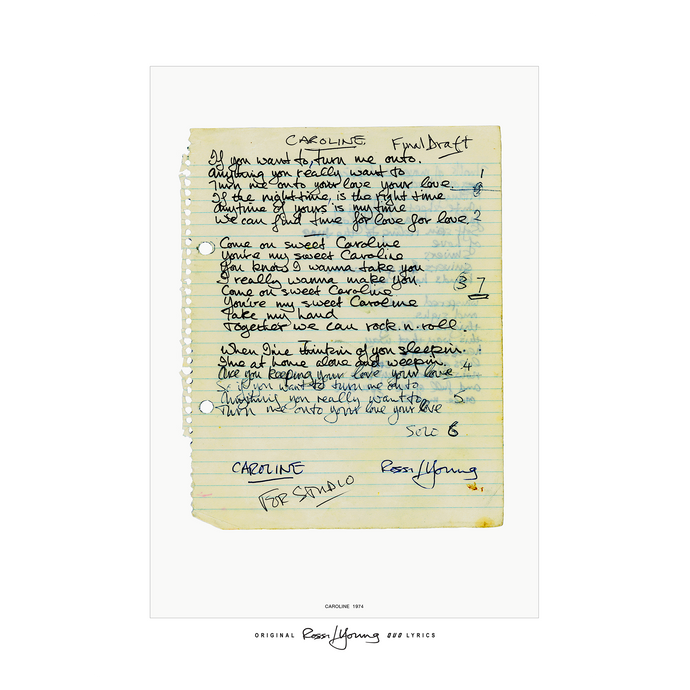 CAROLINE Final Draft
If you want to turn me onto.
anything you really want to 1
Turn me onto your love your love.
If the nighttime, is the right time
Anytime of yours is my time
We can find time for love for love. 2
Come on sweet Caroline
You're my sweet Caroline
You know I wanna take you
I really wanna make you 3 7
Come on sweet Caroline
You're my sweet Caroline
Take my hand
Together we can rock.n.roll.
When I'me thinkin of you sleepin.
I'me at home alone and weepin. 4
Are you keeping your love your love
So if you want to turn me onto
Anything you really want to 5
Turn me onto your love your love
SOLO 6
CAROLINE Rossi/Young
FOR STUDIO
CAROLINE 1974
ORIGINAL Rossi/Young QUO LYRICS